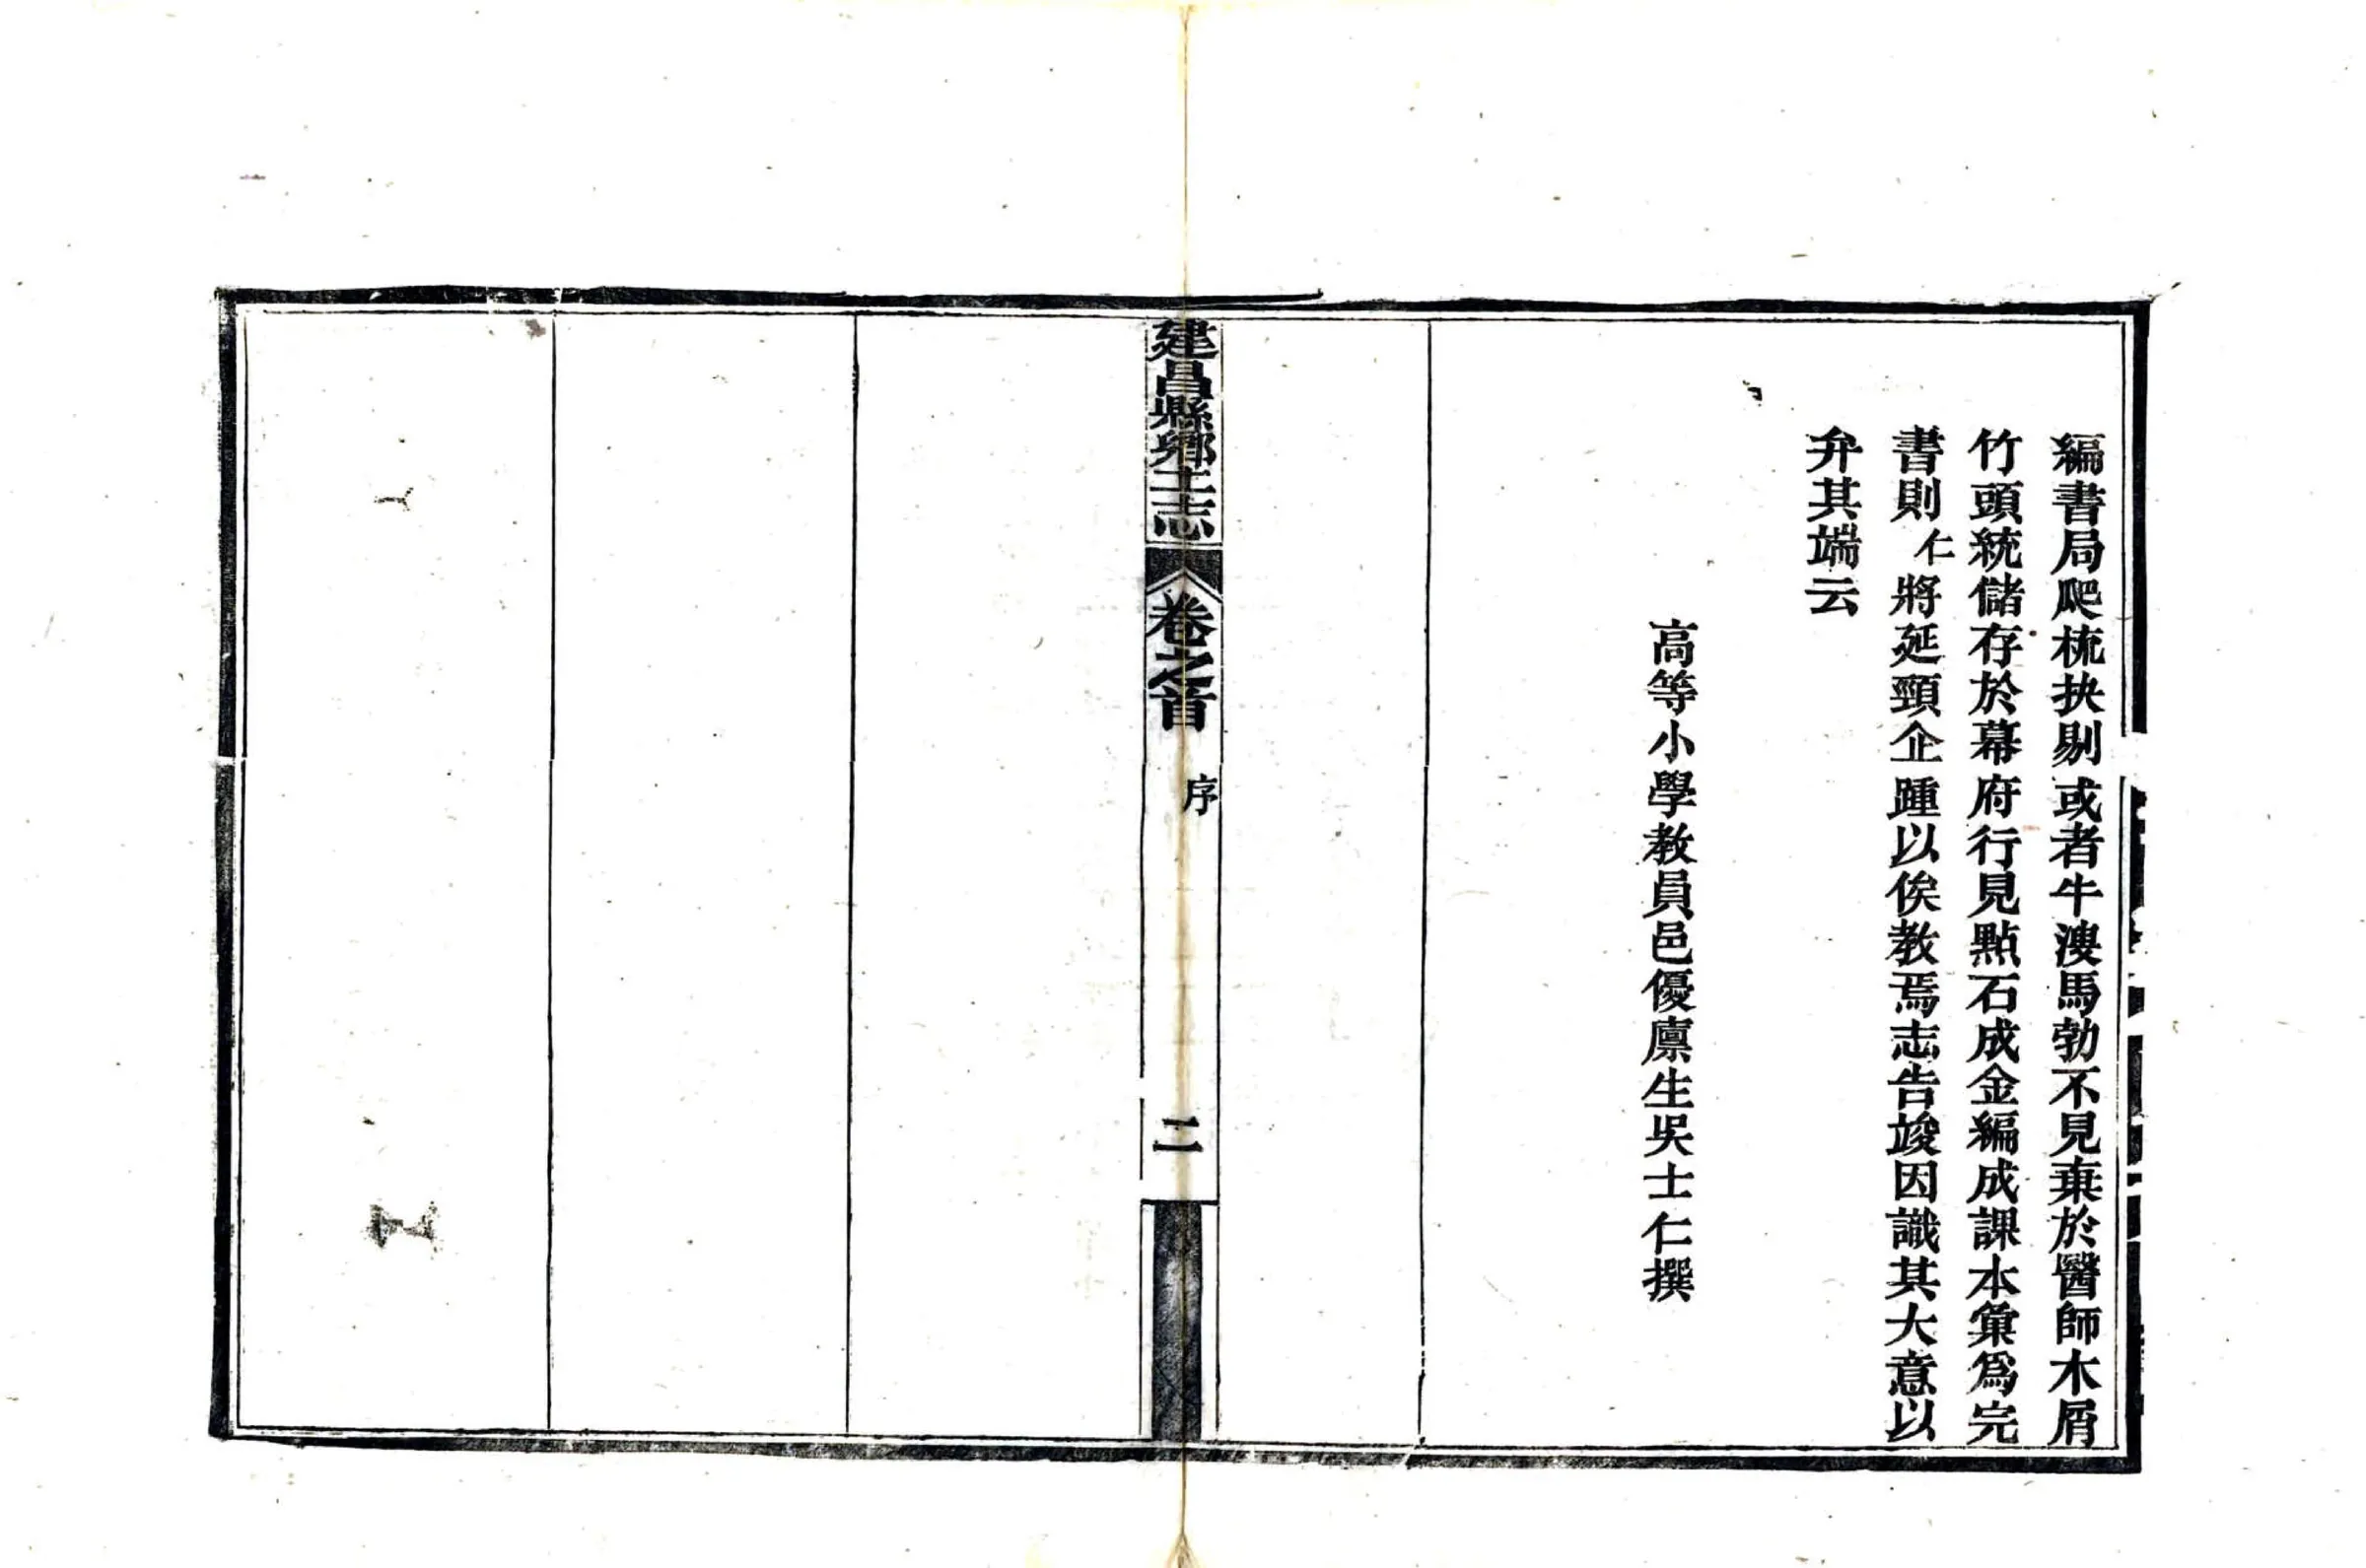 編書局爬梳抉剔或者牛溲馬勃不見棄於醫師木屑
竹頭統儲存於幕府行見點石成金編成課本彙爲完
書則仁將延頸企踵以俟教焉志告竣因識其大意以
弁其端云
高等小學教員邑優廪生吳士仁撰
建昌縣鄉土志 卷之首 序 二